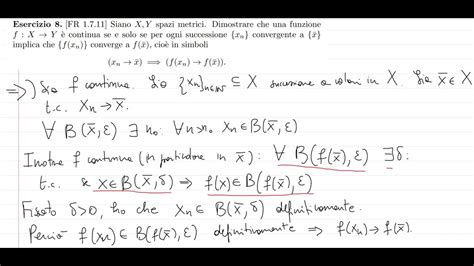 Esercizio 8. [FR 1.7.11] Siano X, Y spazi metrici. Dimostrare che una funzione
f : X → Y è continua se e solo se per ogni successione {xₙ} convergente a {x̄}
implica che {f(xₙ)} converge a f(x̄), cioè in simboli
(xₙ → x̄) ⟹ (f(xₙ) → f(x̄)).
⇒) Sia f continua. Sia {xₙ}ₙ∈ℕ ⊆ X successione a valori in X. Sia x̄ ∈ X
t.c. xₙ → x̄.
∀ B(x̄, ε) ∃ n₀: ∀ n > n₀ xₙ ∈ B(x̄, ε)
Inoltre f continua (in particolare in x̄): ∀ B(f(x̄), ε) ∃ δ:
t.c. x ∈ B(x̄, δ) ⇒ f(x) ∈ B(f(x̄), ε)
Fissato δ>0, ho che xₙ ∈ B(x̄, δ) definitivamente.
Perciò f(xₙ) ∈ B(f(x̄), ε) definitivamente ⇒ f(xₙ) → f(x̄).